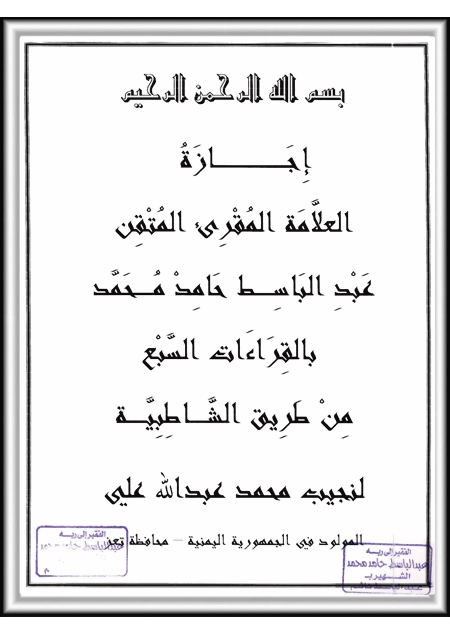 بسم الله الرحمن الرحيم
إِجَــــازَةُ
العلاَّمَة المُقْرِئ المُتْقِن
عَبْدِ البَاسِـط حَامِدْ مُـحَمَّد
بالقِرَاءَات السَّبْع
مِنْ طَرِيق الشَّـاطِبِيَّـة
لنجيب محمد عبدالله علي
المولود في الجمهورية اليمنية – محافظة تعز
الفقير إلى ربه
عبدالباسط حامد محمد
الفقير إلى ربه
عبدالباسط حامد محمد
الشهير بـ